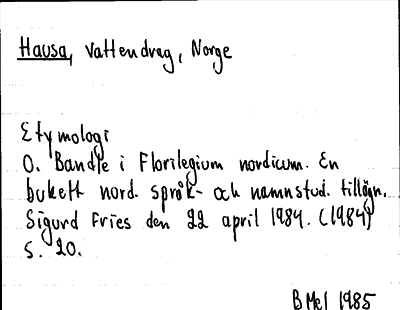 Hausa, vattendrag, Norge
Etymologi
O. Bandle i Florilegium nordicum. En
bukett nord. språk- och namnstud. tillägn.
Sigurd Fries den 22 april 1984. (1984)
S. 20.
BMel 1985